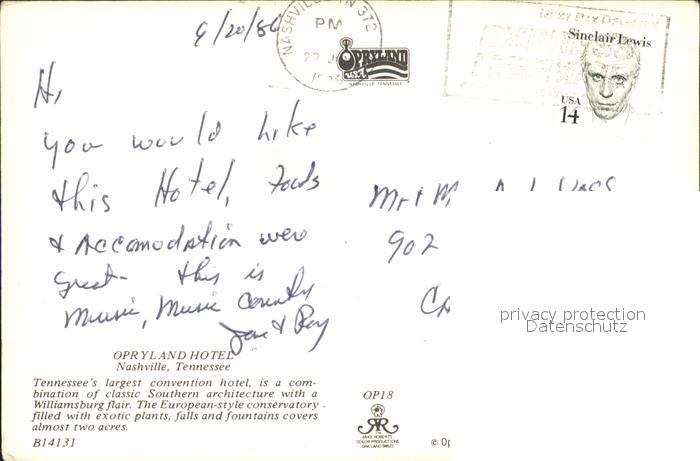 6/20/86
NASHVILLE, TN 372
PM
22 JU
OPRYLAND
USA
NASHVILLE, TENNESSEE
NEXT DAY DELIVERY
Sinclair Lewis
USA
14
Hi,
you would Like
this Hotel, Foods
& Accomodation were
great - this is
Music, Music Country
Jane & Ray
Mr + M
902
CA
privacy protection
Datenschutz
OPRYLAND HOTEL
Nashville, Tennessee
Tennessee's largest convention hotel, is a com-
bination of classic Southern architecture with a
Williamsburg flair. The European-style conservatory
filled with exotic plants, falls and fountains covers
almost two acres.
B14131
OP18
MIKE ROBERTS
COLOR PRODUCTIONS
OAKLAND 94623
© Op